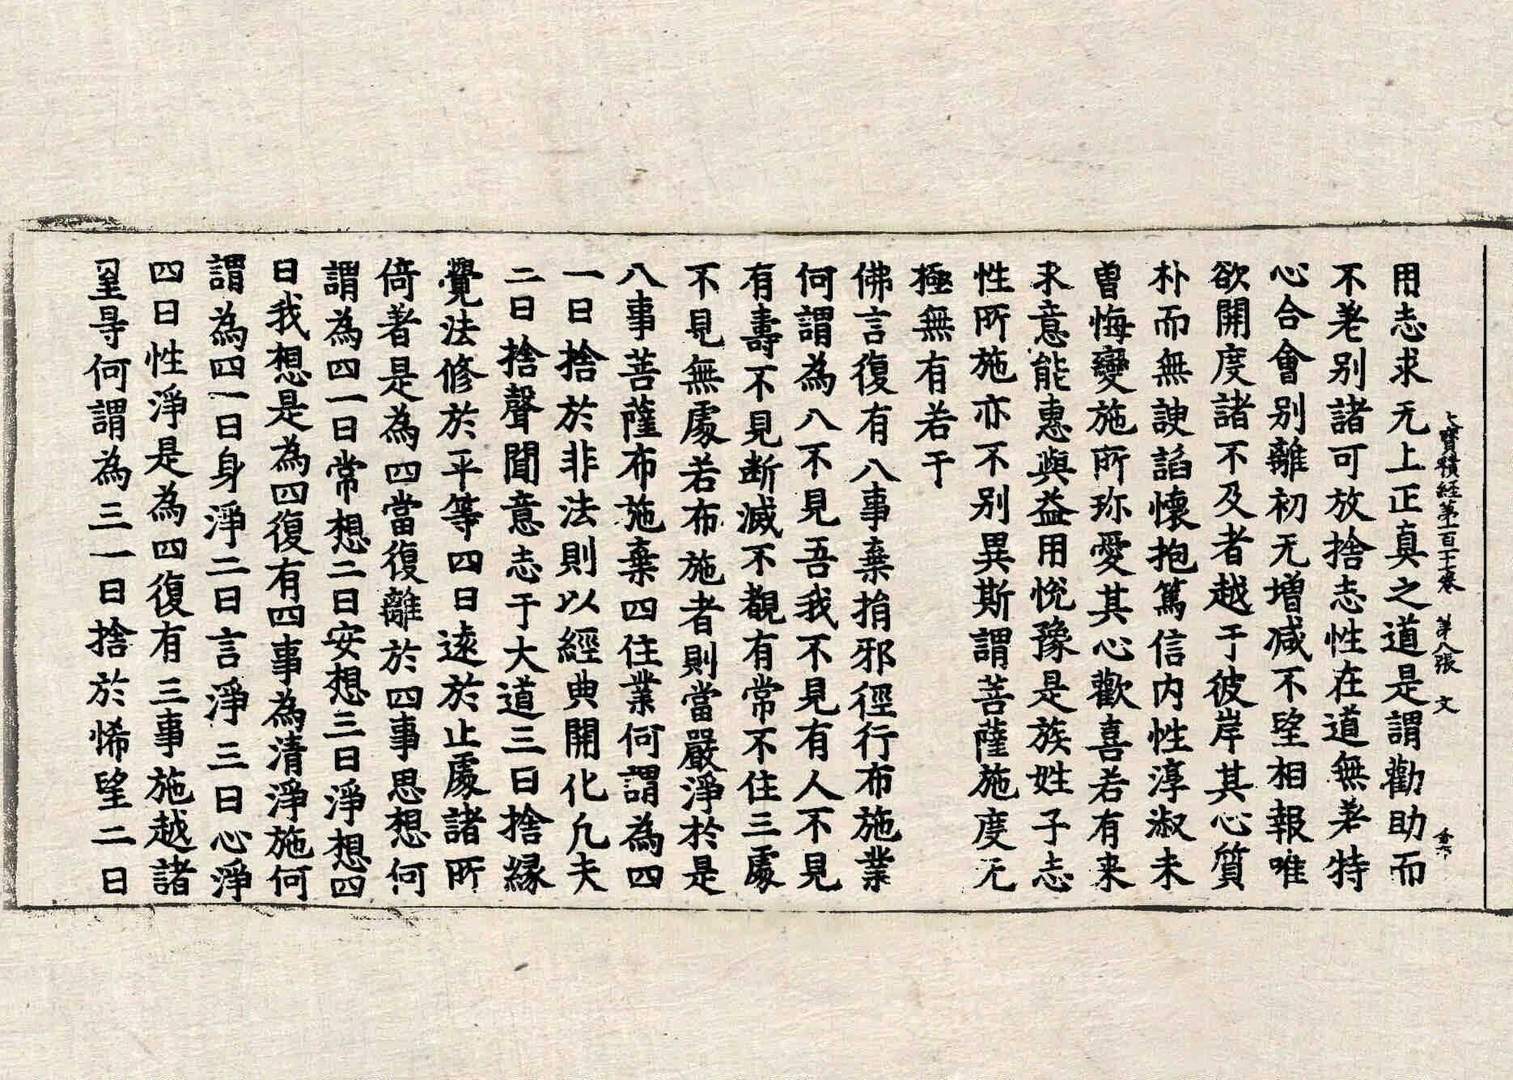 大寳積經第一百十七卷 第八張 文
用志求无上正真之道是謂勸助而
不著别諸可放捨志性在道無著特
心合會别離初无增减不望相報唯
欲開度諸不及者越于彼岸其心質
朴而無諛諂懷抱篤信内性淳淑未
曽悔變施所珎愛其心歡喜若有来
求意能惠與益用悦豫是族姓子志
性所施亦不别異斯謂菩薩施度无
極無有若干
佛言復有八事棄捐邪徑行布施業
何謂為八不見吾我不見有人不見
有壽不見断滅不觀有常不住三處
不見無處若布施者則當嚴淨於是
八事菩薩布施棄四住業何謂為四
一曰捨於非法則以經典開化凢夫
二曰捨聲聞意志于大道三曰捨縁
覺法修於平等四曰逺於止處諸所
倚著是為四當復離於四事思想何
謂為四一曰常想二曰安想三曰淨想四
曰我想是為四復有四事為清淨施何
謂為四一曰身淨二曰言淨三曰心淨
四曰性淨是為四復有三事施越諸
罣㝵何謂為三一曰捨於悕望二曰